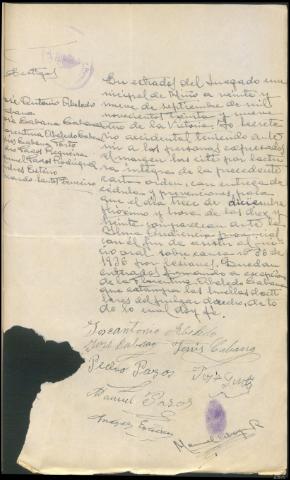 Testigos
José Antonio Abeledo
Cabana
José Cabana Cabana
Florentina Abeledo Cabana
Jesús Cabana
Pedro Pazos
Manuel Pazos Rodríguez
En estrados del Juzgado mu-
nicipal de Miño a veinte y
nueve de septiembre de mil
novecientos treinta y nueve
Año de la Victoria, Yo Secreta
rio accidental teniendo ante
mi a las personas expresadas
al margen las cité por lectura
íntegra de la precedente
carta orden, con entrega de
cédulas y prevenciones para
que el día trece de diciembre
próximo y hora de las diez y
treinta comparezcan ante la
Ilma Audiencia Provincial
con el fin de asistir al jui
cio oral sobre causa nº 36 de
1936 por lesiones. Quedan
enterados firmando a excepción
de la Florentina Abeledo Cabana
que estampa las huellas dacti
lares del pulgar derecho, de to
do lo cual doy fe.
Jose Antonio Abeledo
José Cabana Jesús Cabana
Pedro Pazos
Manuel Pazos